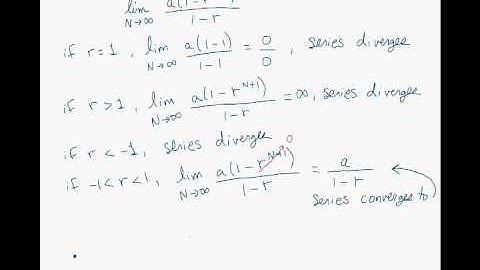 lim a(1-r^N+1)
N→∞ 1-r
if r=1, lim N→∞ a(1-1)/1-1 = 0/0, series diverges
if r>1, lim N→∞ a(1-r^N+1)/1-r = ∞, series diverges
if r<-1, series diverges
if -1<r<1, lim N→∞ a(1-r^N+1)/1-r = a/1-r
0
series converges to